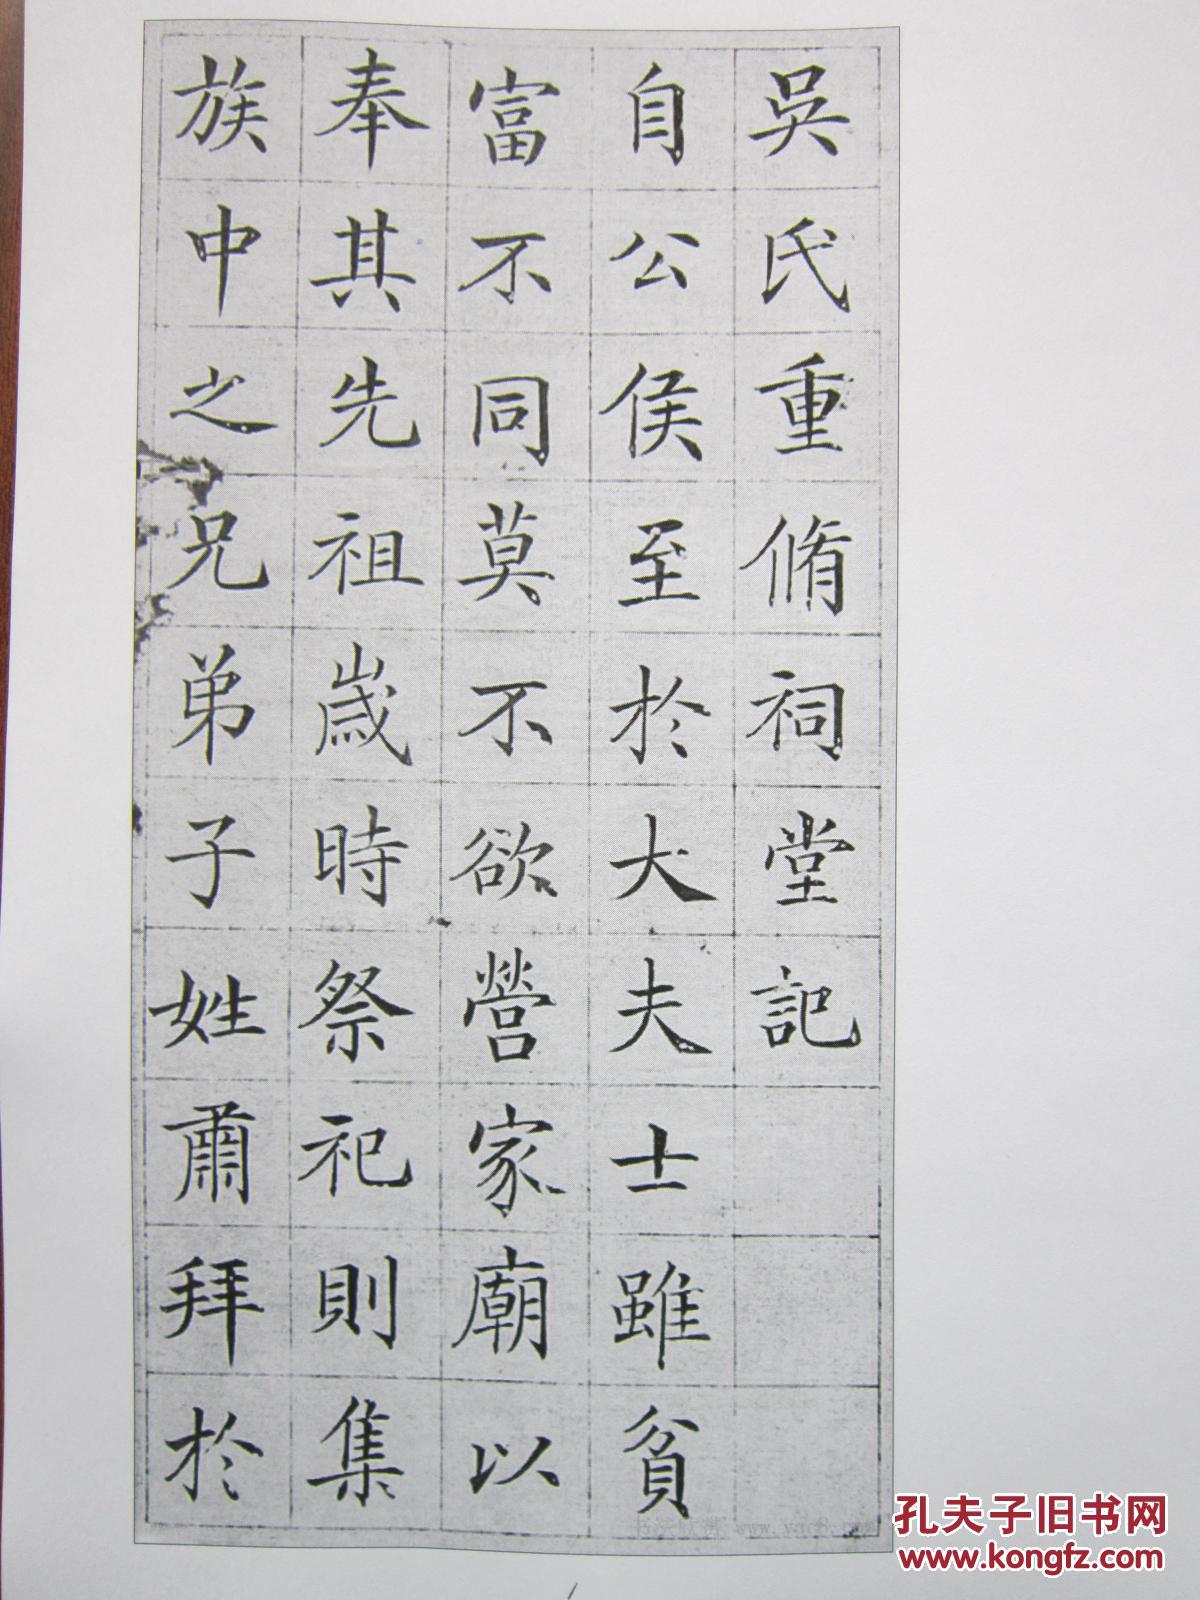 吳氏重脩祠堂記
自公侯至於大夫士雖貧
富不同莫不欲營家廟以
奉其先祖歲時祭祀則集
族中之兄弟子姓肅拜於
孔夫子旧书网
www.kongfz.com